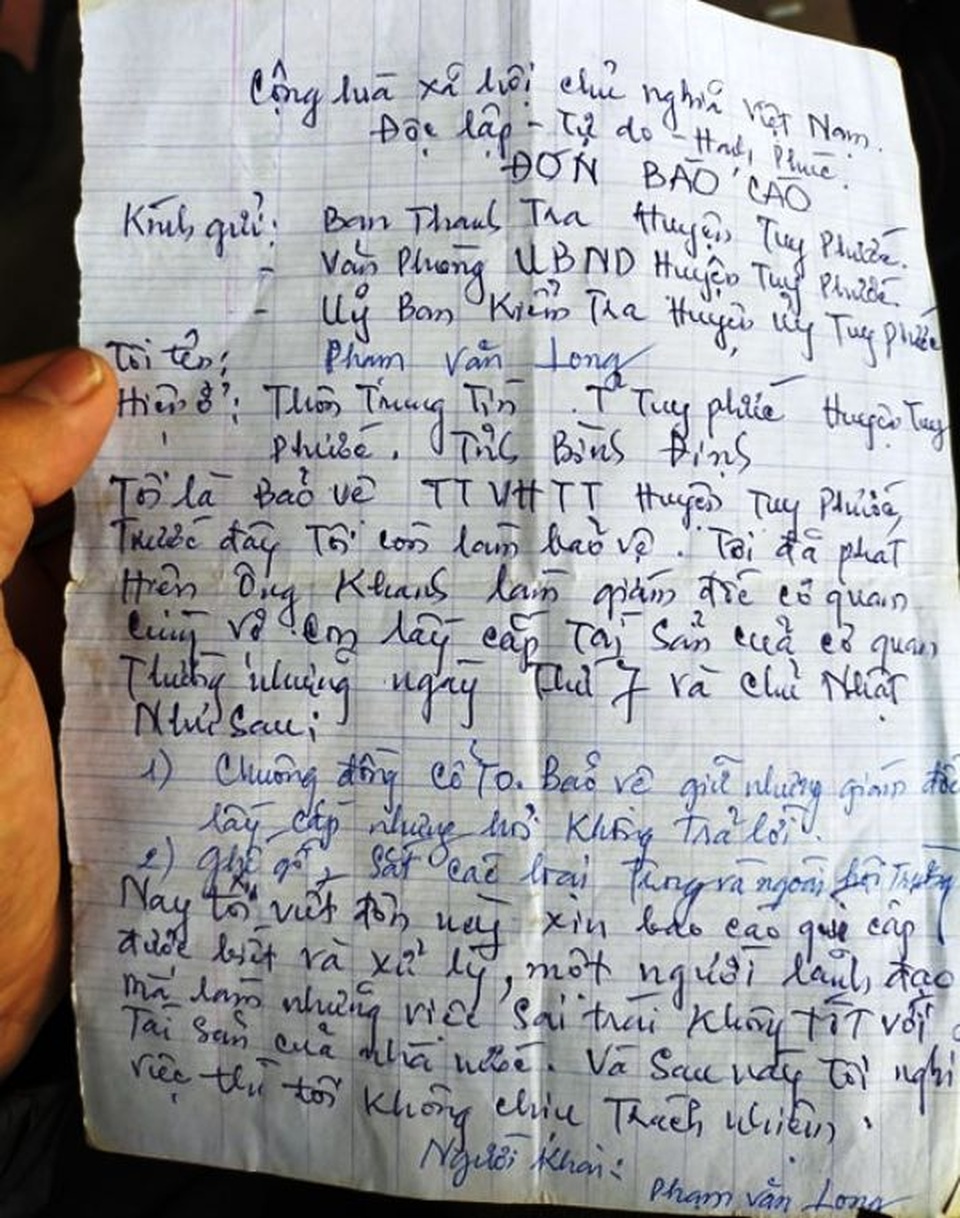 Cộng hoà xã hội chủ nghĩa Việt Nam.
Độc lập - Tự do - Hạnh Phúc.
ĐƠN BÁO CÁO
Kính gửi: Ban Thanh Tra Huyện Tuy Phước.
- Văn Phòng UBND Huyện Tuy Phước
- Uỷ Ban Kiểm Tra Huyện uỷ Tuy phước
Tôi tên: Phạm Văn Long
Hiện ở: Thôn Trung Tín . TT Tuy phước Huyện Tuy
Phước. Tỉnh Bình Định
Tôi là Bảo vệ TTVHTT Huyện Tuy Phước,
Trước đây Tôi còn làm bảo vệ. Tôi đã phát
Hiện Ông Khanh làm giám đốc cơ quan
cùng vợ con lấy cắp Tài sản của cơ quan
Thường những ngày Thứ 7 và chủ Nhật
Như sau:
1) Chuông đồng cổ To. Bảo vệ giữ nhưng giám đốc
lấy cắp nhưng hỏi không trả lời.
2) Ghế gỗ, sắt các loại Trong và ngoài hội Trường
Nay tôi viết đơn này xin báo cáo quý cấp
được biết và xử lý, một người lãnh đạo
mà làm những việc sai trái không tốt với
Tài sản của nhà nước. Và sau này tôi nghỉ
việc thì tôi không chịu Trách nhiệm.
Người khai:
Phạm Văn Long